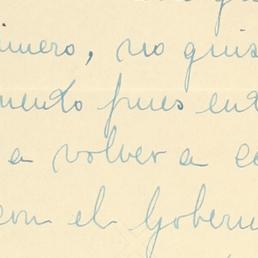 imero, no quis
mento pues ent
a volver a e
con el Gobern